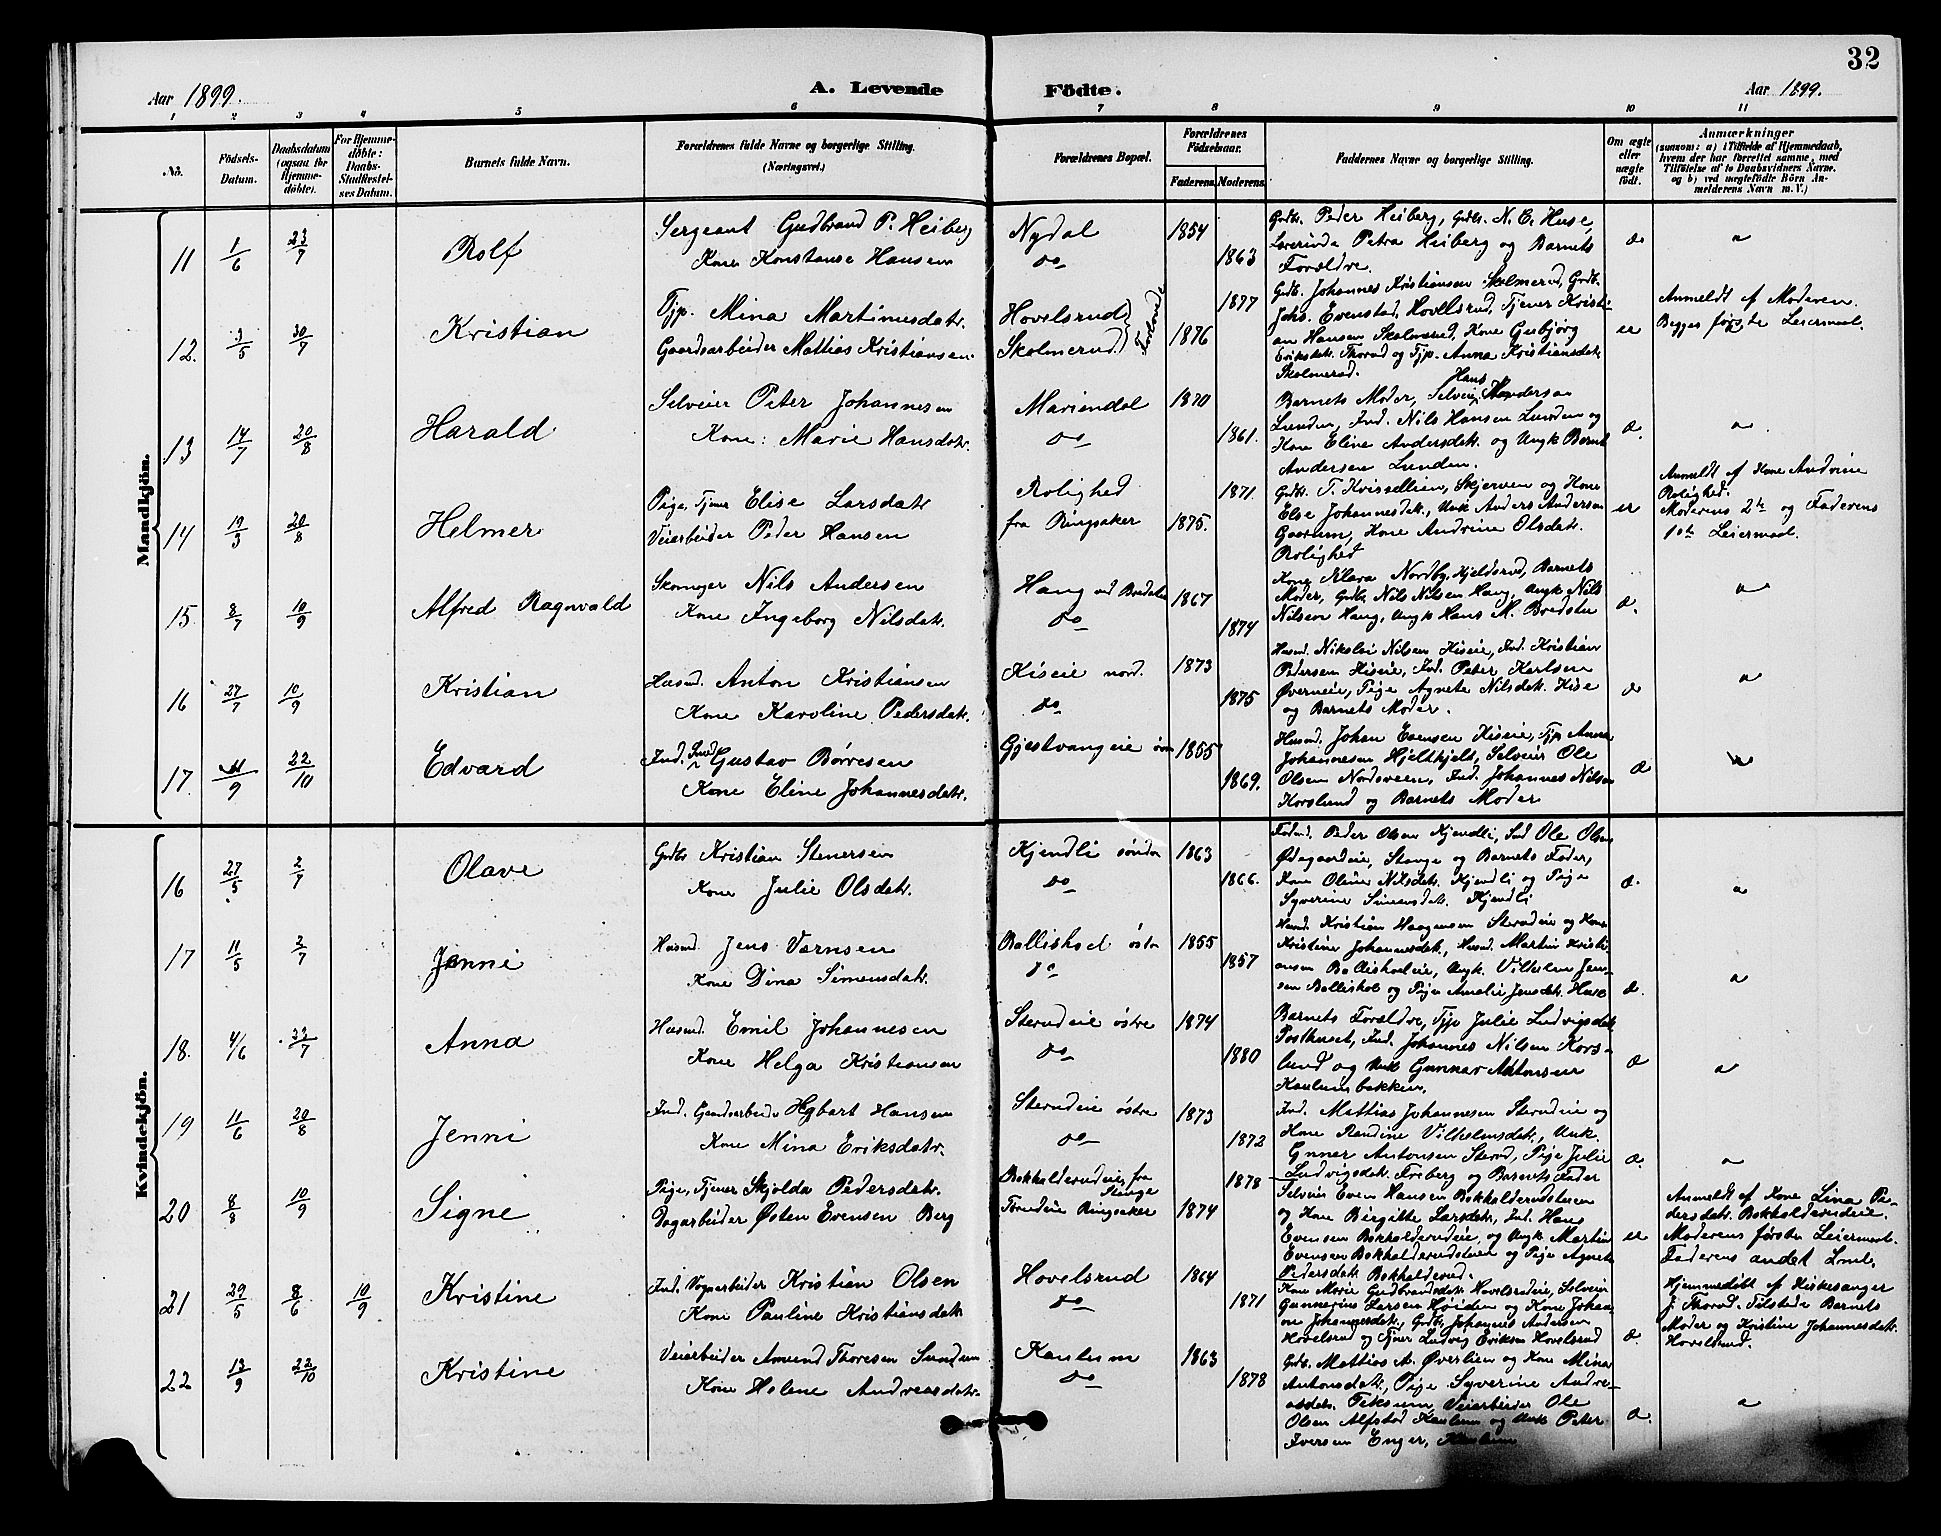 32
Aar 1899.
A. Levende
Födte.
Aar 1899.
1 2 3 4 5 6 7 8 9 10 11
No.
Födsels-
Datum.
Daabsdatum
(ogsaa for
Hjemme-
döbte).
For Hjemme-
döbte:
Daabs-
Stadfæstel-
ses Datum.
Barnets fulde Navn.
Forældrenes fulde Navne og borgerlige Stilling.
(Næringsvei.)
Forældrenes Bopæl.
Forældrenes
Födselsaar.
Faderens. Moderens.
Faddernes Navne og borgerlige Stilling.
Om ægte
eller
uægte
födt.
Anmærkninger
(saasom: a) i Tilfælde af Hjemmedaab,
hvem der har forrettet samme, med
Tilföielse af to Daabsvidners Navne,
og b) ved uægtefödte Börn An-
melderens Navn m. V.)
Mandkjön.
11
1/6
23/7
Rolf
Sergeant Gudbrand P. Heiberg
Kone Konstanse Hansen
Nydal
do
1854
1863
Gdb. Peder Heiberg, Gdb. N. C. Huse,
Lærerinde Petra Heiberg og Barnets
Forældre.
æ
12.
3/5
30/7
Kristian
Tjp. Mina Martinusdatr.
Gaardsarbeider Mattias Kristiansen.
Hovelsrud
Skolmerud
Forlovede
1877
1876
Gdb. Johannes Kristiansen Skolmerud, Gdb.
Johs. Evenstad, Hovelsrud, Tjener Kristi-
an Hansen Skolmerud, Kone Gubjörg
Eriksdatr. Thorud og Tjp. Anna Kristiansdatr.
Skolmerud.
er
Anmeldt af Moderen.
Begges første Leiermaal.
13
14/7
20/8
Harald
Selveier Peter Johannesen
Kone: Marie Hansdatr.
Mariendal
do
1870
1861.
Barnets Moder, Selveier Hans Andersen
Lunden, Ind. Nils Hansen Lunden og
Kone Eline Andersdatr. og Ungk Bernt
Andersen Lunden.
æ.
14
19/3
20/8
Helmer
Pige, Tjener Elise Larsdatr
Veiarbeider Peder Hansen
Rolighed
fra Ringsaker
1871
1875.
Gdb. T. Kristellien, Skjerven og Kone
Else Johannesdatr., Unk Anders Andersen
Gaarum, Kone Andrine Olsdatr.
Rolighed
er
Anmeldt af Kone Andrine
Rolighed.
Moderens 2de og Faderens
1ste Leiermaal.
15.
8/7
10/9
Alfred Ragnvald
Skomager Nils Andersen
Kone Ingeborg Nilsdatr.
Haug
do
1867
1874
Kone Klara Nordby, Kjelderud, Barnets
Moder, Gdb. Nils Nilsen Haug, Ungk Nils
Nilsen Haug, Ungk Hans M. Bredstu
æ.
16
27/7
10/9
Kristian
Husmd. Anton Kristiansen
Kone Karoline Pedersdatr.
Kiseie nord.
do
1873
1875
Husmd. Nikolai Nilsen Kiseie, Ind. Kristian
Pedersen Kiseie, Ind. Peter Karlsen
Øverneie, Pige Agnete Nilsdatr. Kise
og Barnets Moder.
æ
17.
11/9
22/10
Edvard
Ind. Smed Gustav Børresen
Kone Eline Johannesdatr.
Gjestvangeie øvre
1855
1869.
Husmd. Johan Evensen Kiseie, Tjp Anna
Johannesen Hjeltkjelt, Selveier Ole
Olsen Nordsveen, Ind. Johannes Nilsen
Korslund og Barnets Moder
æ
Kvindekjön.
16
27/5
2/7
Olave
Gdb Kristian Stenersen
Kone Julie Olsdatr.
Kjendli søndre
do
1863
1866.
Peder Olsen Kjendli, Ind Ole Olsen
Ødegaardeie, Stange og Barnets Fader,
Kone Oline Nilsdatr. Kjendli og Pige
Syverine Simensdatr. Kjendli
æ.
17
11/5
2/7
Jenni
Husmd. Jens Varnsen
Kone Dina Simensdatr.
Ballishoel østre
do
1855
1857
Husmd. Kristian Haagensen Sterudeie og Kone
Kristine Johannesdatr., Husmd. Martin Kristi-
ansen Ballishoeleie, Ungk. Vilhelm Jen-
sen Ballishol og Pige Amalie Jensdatr. Huse
æ.
18.
4/6
23/7
Anna
Husmd. Emil Johannesen
Kone Helga Kristiansen
Sterudeie østre
do
1874
1880
Barnets Forældre, Tjp Julie Ludvigsdatr
Posthuset, Ind. Johannes Nilsen Kors-
lund og Unk Gunnar Antonsen
Kaulumbakken.
æ
19
11/6
20/8
Jenni
Ind. Gaardsarbeider Hegbart Hansen
Kone Mina Eriksdatr.
Sterudeie østre
do
1873
1872
Ind. Mattias Johannesen Sterudeie og
Kone Randine Vilhelmsdatr., Unk.
Gunner Antonsen Sterud, Pige Julie
Ludvigsdatr. Friberg og Barnets Fader
æ.
20
8/8
10/9
Signe
Pige, Tjener Skjolda Pedersdatr.
Dagarbeider Østen Evensen Berg
Bekkholderudeie, fra
Stange
Ringsaker
1878
1874
Selveier Even Hansen Bekkholderudstuen
og Kone Birgitte Larsdatr., Ind. Hans
Evensen Bekkholderudeie, og Ungk Martin
Evensen Bekkholderudstuen og Pige Agnete
Pedersdatr Bekkholderud.
er
Anmeldt af Kone Lina Pe-
dersdatr. Bekkholderudeie.
Moderens første Leiermaal.
Faderens andet Lml.
21
29/5
8/6
10/9
Kristine
Ind. Kristian Olsen
Kone Pauline Kristiansdatr
Hovelsrud
do
1864
1871
Kone Marie Gudbrandsdatr. Hovelsrudeie, Selveier
Gunnerius Larsen Høiden og Kone Johan-
ne Johannesdatr., Gdb. Johannes Andersen
Hovelsrud og Tjener Ludvig Eriksen Hovelsrud
æ
Hjemmedøbt af Kirkesanger
J. Thorud. Tilstede Barnets
Moder og Kristine Johannesdatr.
Hovelsrud.
22
13/9
22/10
Kristine
Veiarbeider Amund Thoresen Sundum
Kone Helene Andreasdatr.
Kaulum
do
1863
1878
Gdb. Mattias A. Øverlien og Kone Mina
Antonsdatr., Pige Syverine Andre-
asdatr. Teksum, Veiarbeider Ole
Olsen Alfstad Kaulum og Unk Peter
Iversen Enger, Kaulum
æ.